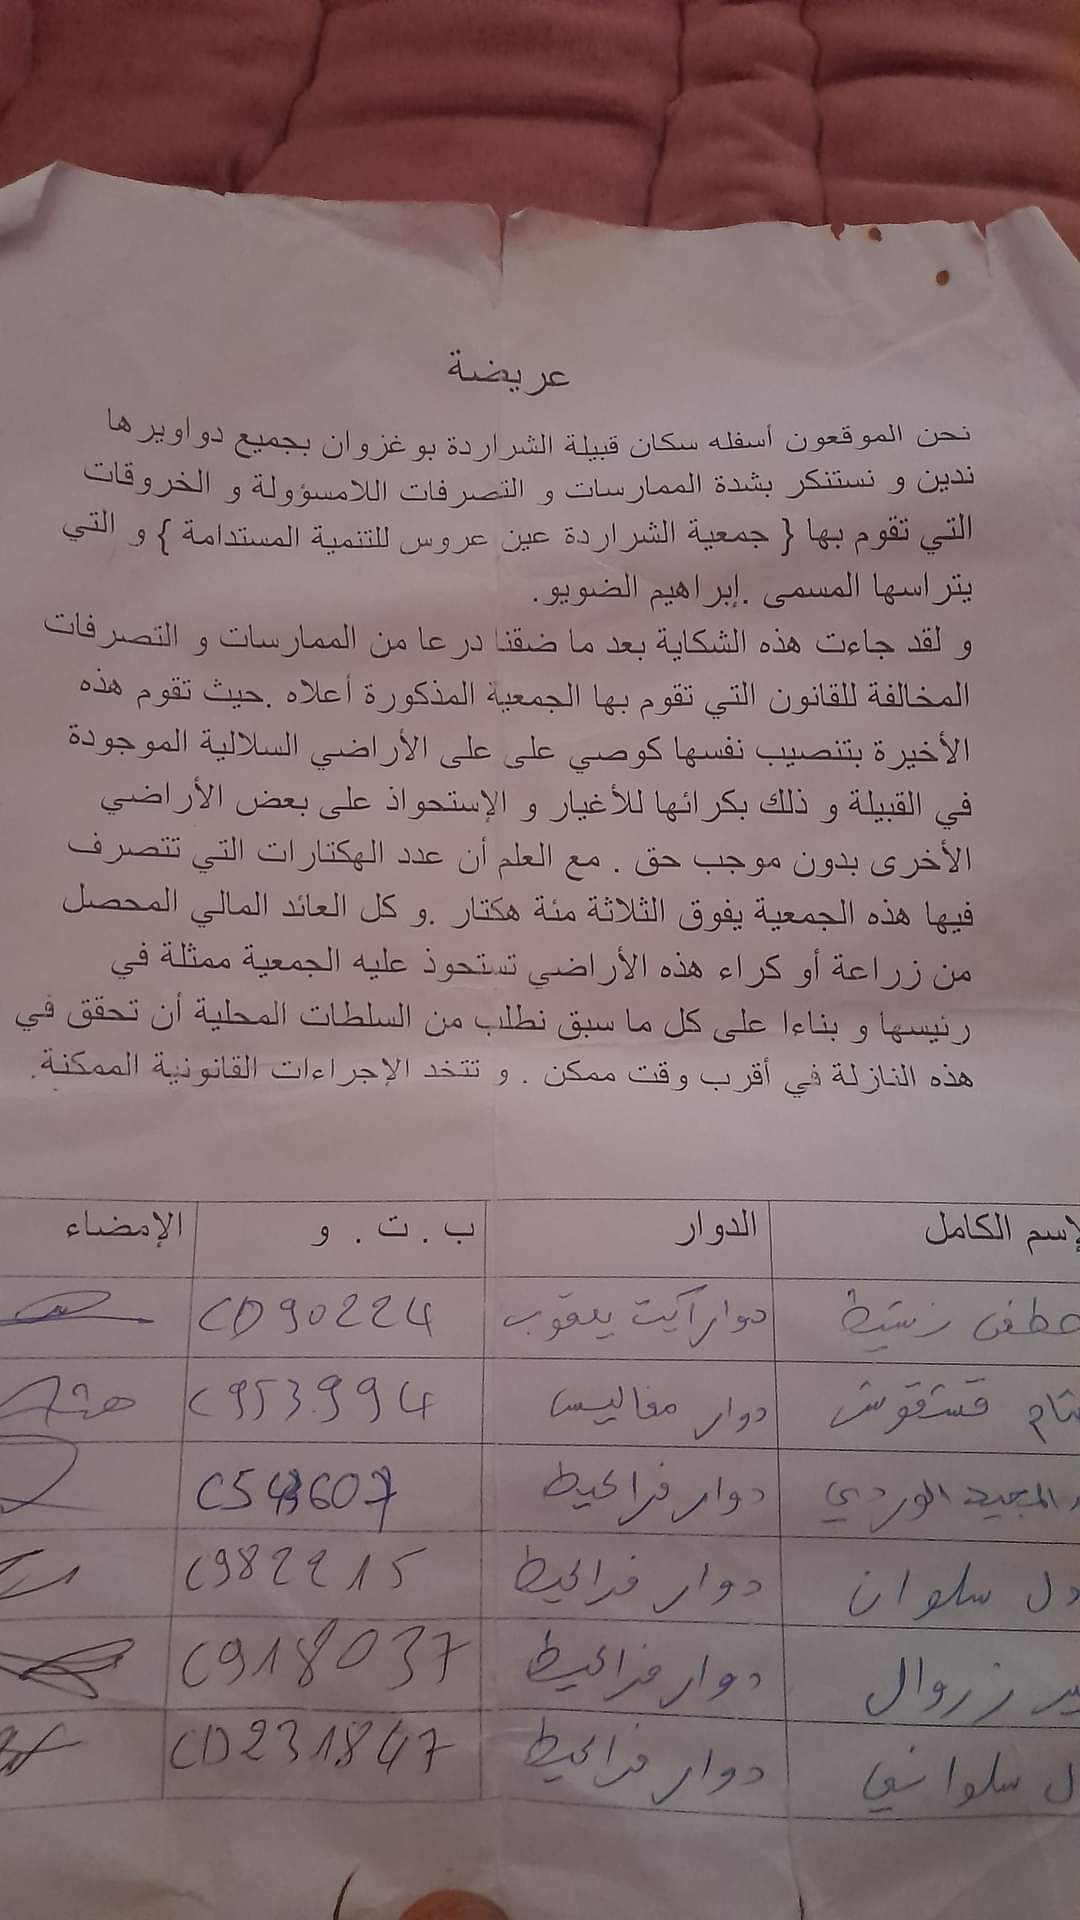 عريضة
نحن الموقعون أسفله سكان قبيلة الشراردة بوغزوان بجميع دواويرها
ندين و نستنكر بشدة الممارسات و التصرفات اللامسؤولة و الخروقات
التي تقوم بها { جمعية الشراردة عين عروس للتنمية المستدامة } و التي
يتراسها المسمى .إبراهيم الضويو.
و لقد جاءت هذه الشكاية بعد ما ضقنا درعا من الممارسات و التصرفات
المخالفة للقانون التي تقوم بها الجمعية المذكورة أعلاه .حيث تقوم هذه
الأخيرة بتنصيب نفسها كوصي على على الأراضي السلالية الموجودة
في القبيلة و ذلك بكرائها للأغيار و الإستحواذ على بعض الأراضي
الأخرى بدون موجب حق . مع العلم أن عدد الهكتارات التي تتصرف
فيها هذه الجمعية يفوق الثلاثة مئة هكتار .و كل العائد المالي المحصل
من زراعة أو كراء هذه الأراضي تستحوذ عليه الجمعية ممثلة في
رئيسها و بناءا على كل ما سبق نطلب من السلطات المحلية أن تحقق في
هذه النازلة في أقرب وقت ممكن . و تتخد الإجراءات القانونية الممكنة.
لإسم الكامل الدوار ب . ت . و الإمضاء
دوار آيت يعقوب CD90224
قشقوش دوار مغاليس C953994
المجيد الوردي دوار فرايحيط
سلوان دوار فرايحيط C982215
زروال دوار فرايحيط C918037
سلواني دوار فرايحيط CD231847